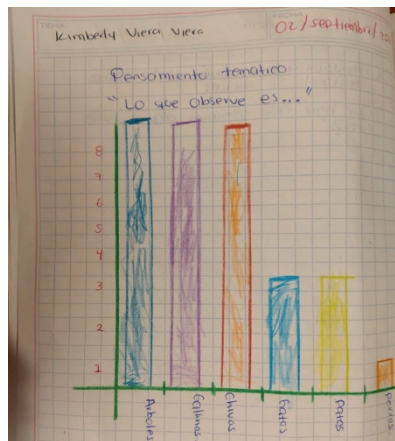 Kimberly Viera Viera
02/septiembre/
Pensamiento tematico
"Lo que observe es..."
8
7
6
5
4
3
2
1
Arboles
Gallinas
Chivas
Gatos
patos